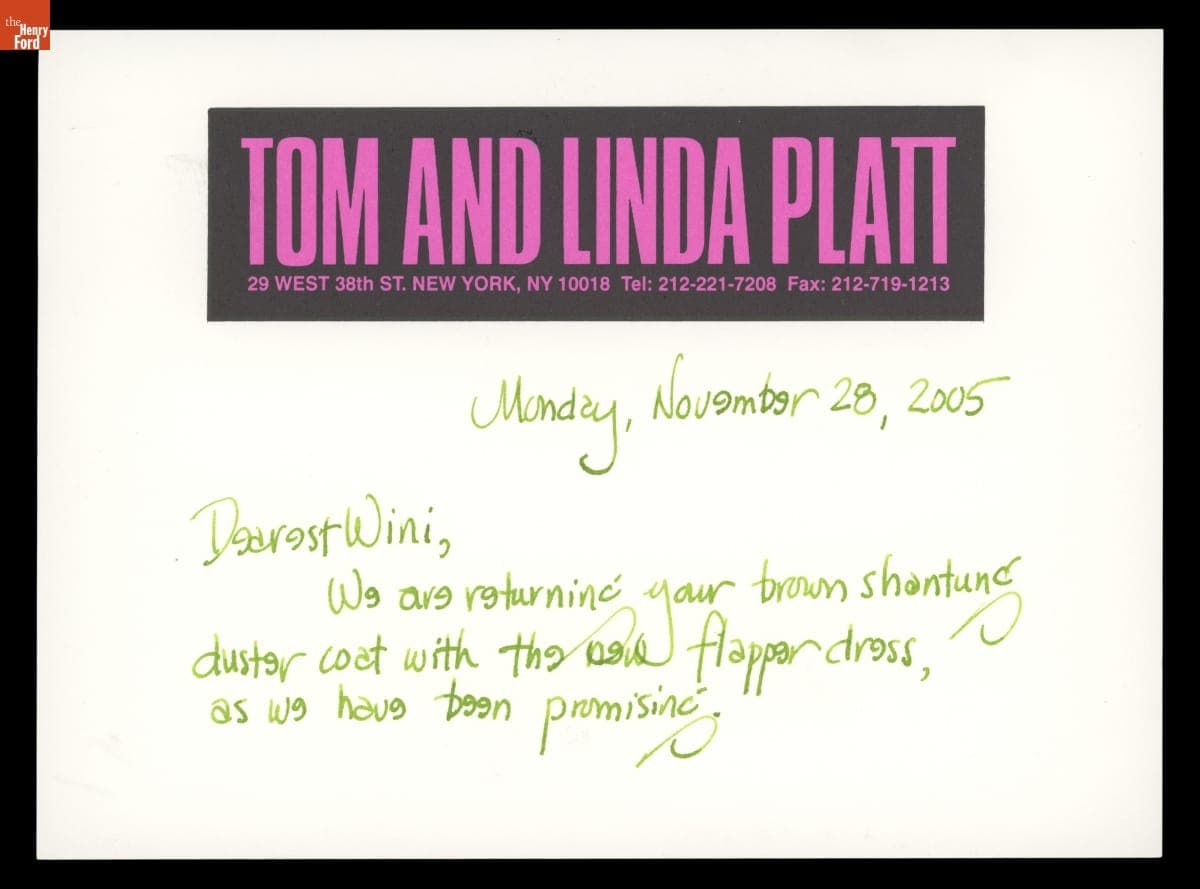 the
Henry
Ford
TOM AND LINDA PLATT
29 WEST 38th ST. NEW YORK, NY 10018 Tel: 212-221-7208 Fax: 212-719-1213
Monday, November 28, 2005
Dearest Wini,
We are returning your brown shantung
duster coat with the new flapper dress,
as we have been promising.